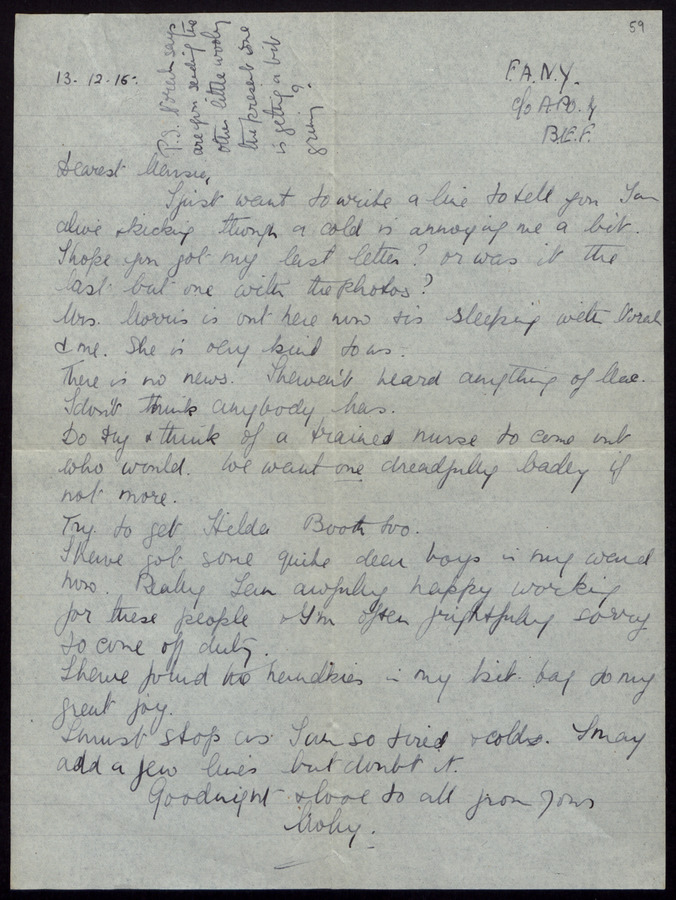 59
13. 12. 15.
F.A.N.Y.
c/o A.P.O. 4
B.E.F.
P.S. Norah says
are you sending the
other little woolly
the present one
is getting a bit
grimy?
Dearest
I just want to write a line to tell you I am
alive & kicking though a cold is annoying me a bit.
I hope you got my last letter? or was it the
last but one with the photos?
Mrs. Morris is out here now & is sleeping with Norah
& me. She is very kind to us.
There is no news. I haven't heard anything of Mac.
I don't think anybody has.
Do try & think of a trained nurse to come out
who would. We want one dreadfully badly if
not more.
Try to get Hilda Booth too.
I have got some quite dear boys in my ward
now. Really I am awfully happy working
for these people & I'm often frightfully sorry
to come off duty.
I have found two hendkies in my kit bag to my
great joy.
I must stop as I am so tired & cold. I may
add a few lines but doubt it.
Goodnight & love to all from yours